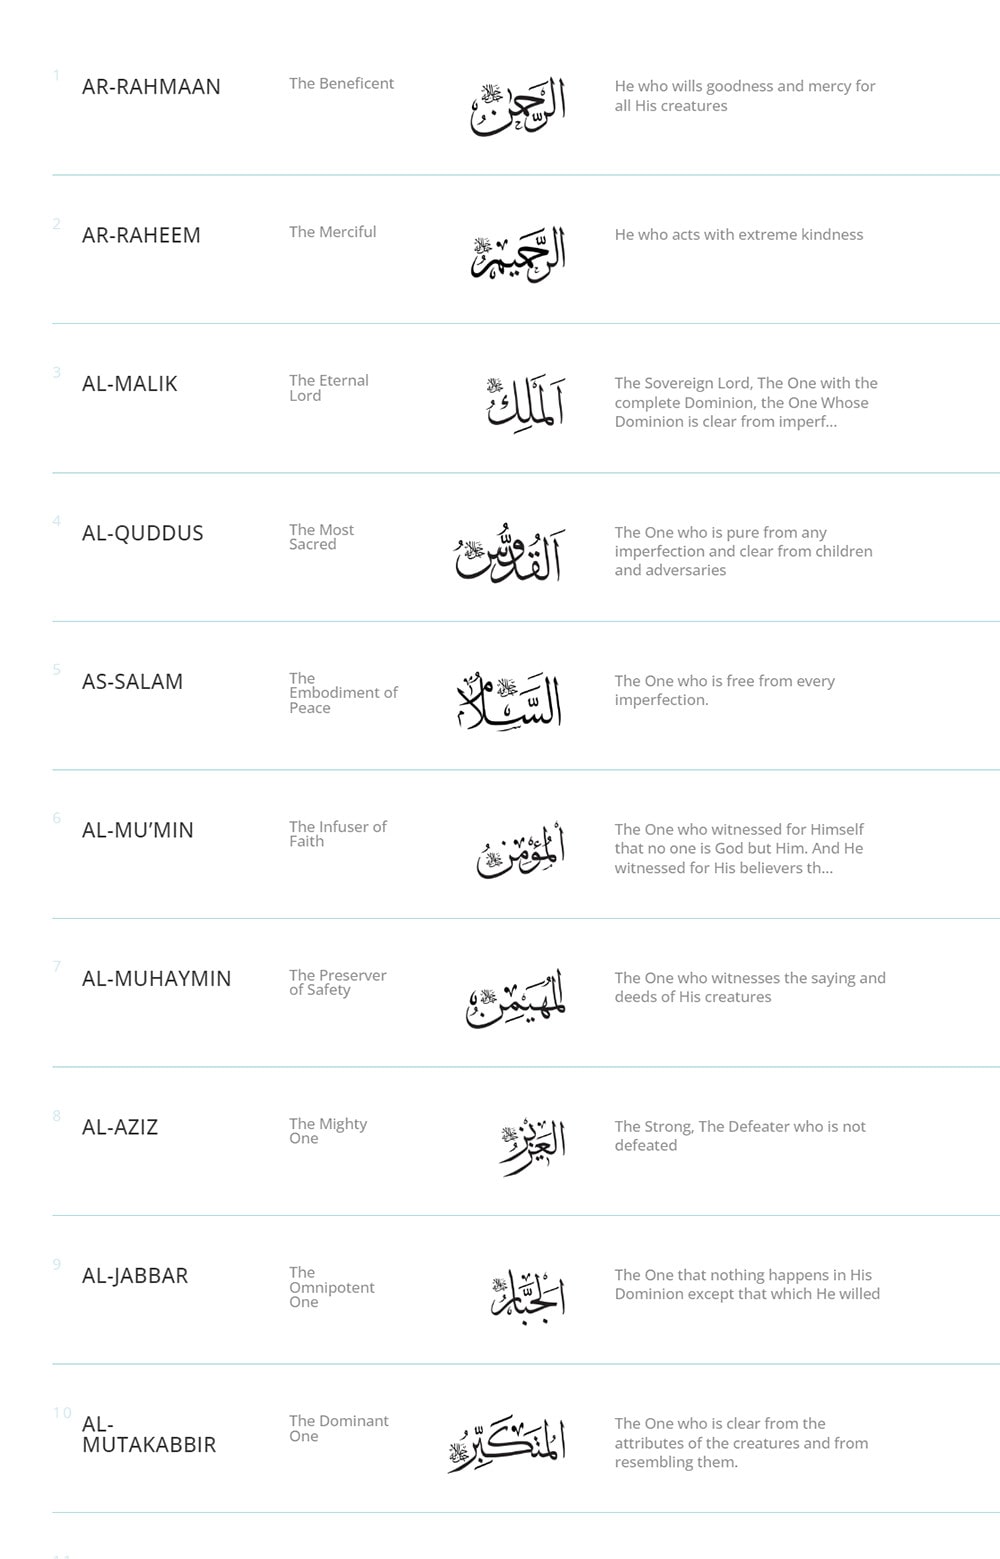 1
AR-RAHMAAN
The Beneficent
الرَّحْمٰنُ ﷻ
He who wills goodness and mercy for
all His creatures
2
AR-RAHEEM
The Merciful
الرَّحِيمُ ﷻ
He who acts with extreme kindness
3
AL-MALIK
The Eternal
Lord
اَلْمَلِكُ ﷻ
The Sovereign Lord, The One with the
complete Dominion, the One Whose
Dominion is clear from imperf...
4
AL-QUDDUS
The Most
Sacred
اَلْقُدُّوسُ ﷻ
The One who is pure from any
imperfection and clear from children
and adversaries
5
AS-SALAM
The
Embodiment of
Peace
السَّلَامُ ﷻ
The One who is free from every
imperfection.
6
AL-MU’MIN
The Infuser of
Faith
اَلْمُؤْمِنُ ﷻ
The One who witnessed for Himself
that no one is God but Him. And He
witnessed for His believers th...
7
AL-MUHAYMIN
The Preserver
of Safety
اَلْمُهَيْمِنُ ﷻ
The One who witnesses the saying and
deeds of His creatures
8
AL-AZIZ
The Mighty
One
الْعَزِيزُ ﷻ
The Strong, The Defeater who is not
defeated
9
AL-JABBAR
The
Omnipotent
One
اَلْجَبَّارُ ﷻ
The One that nothing happens in His
Dominion except that which He willed
10
AL-
MUTAKABBIR
The Dominant
One
اَلْمُتَكَبِّرُ ﷻ
The One who is clear from the
attributes of the creatures and from
resembling them.